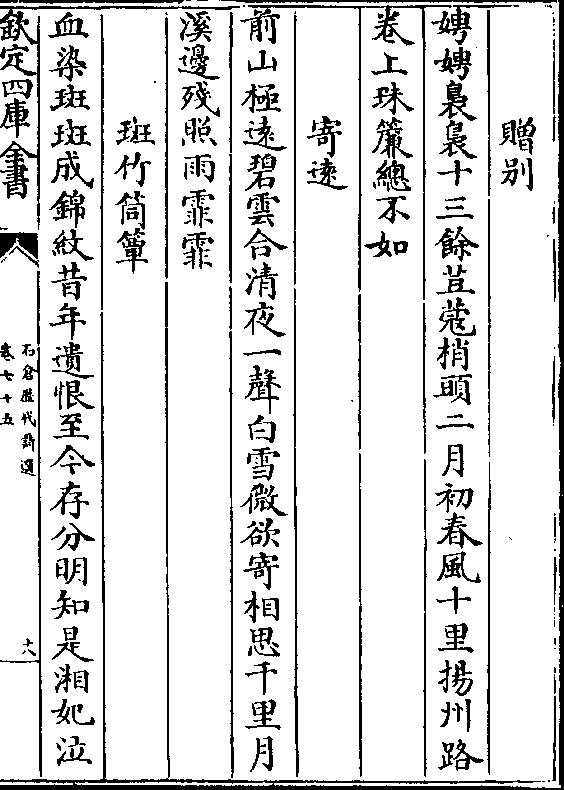 贈別
娉娉裊裊十三餘荳蔻梢頭二月初春風十里揚州路
卷上珠簾總不如
寄遠
前山極逺碧雲合清夜一聲白雪微欲寄相思千里月
溪邊殘照雨霏霏
斑竹筒簟
血染斑斑成錦紋昔年遺恨至今存分明知是湘妃泣
欽定四庫全書
石倉歷代詩選
卷七十五
十八